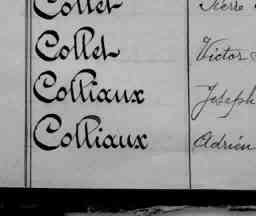 Collet Pierre
Collet Victor
Colliaux Joseph
Colliaux Adrien